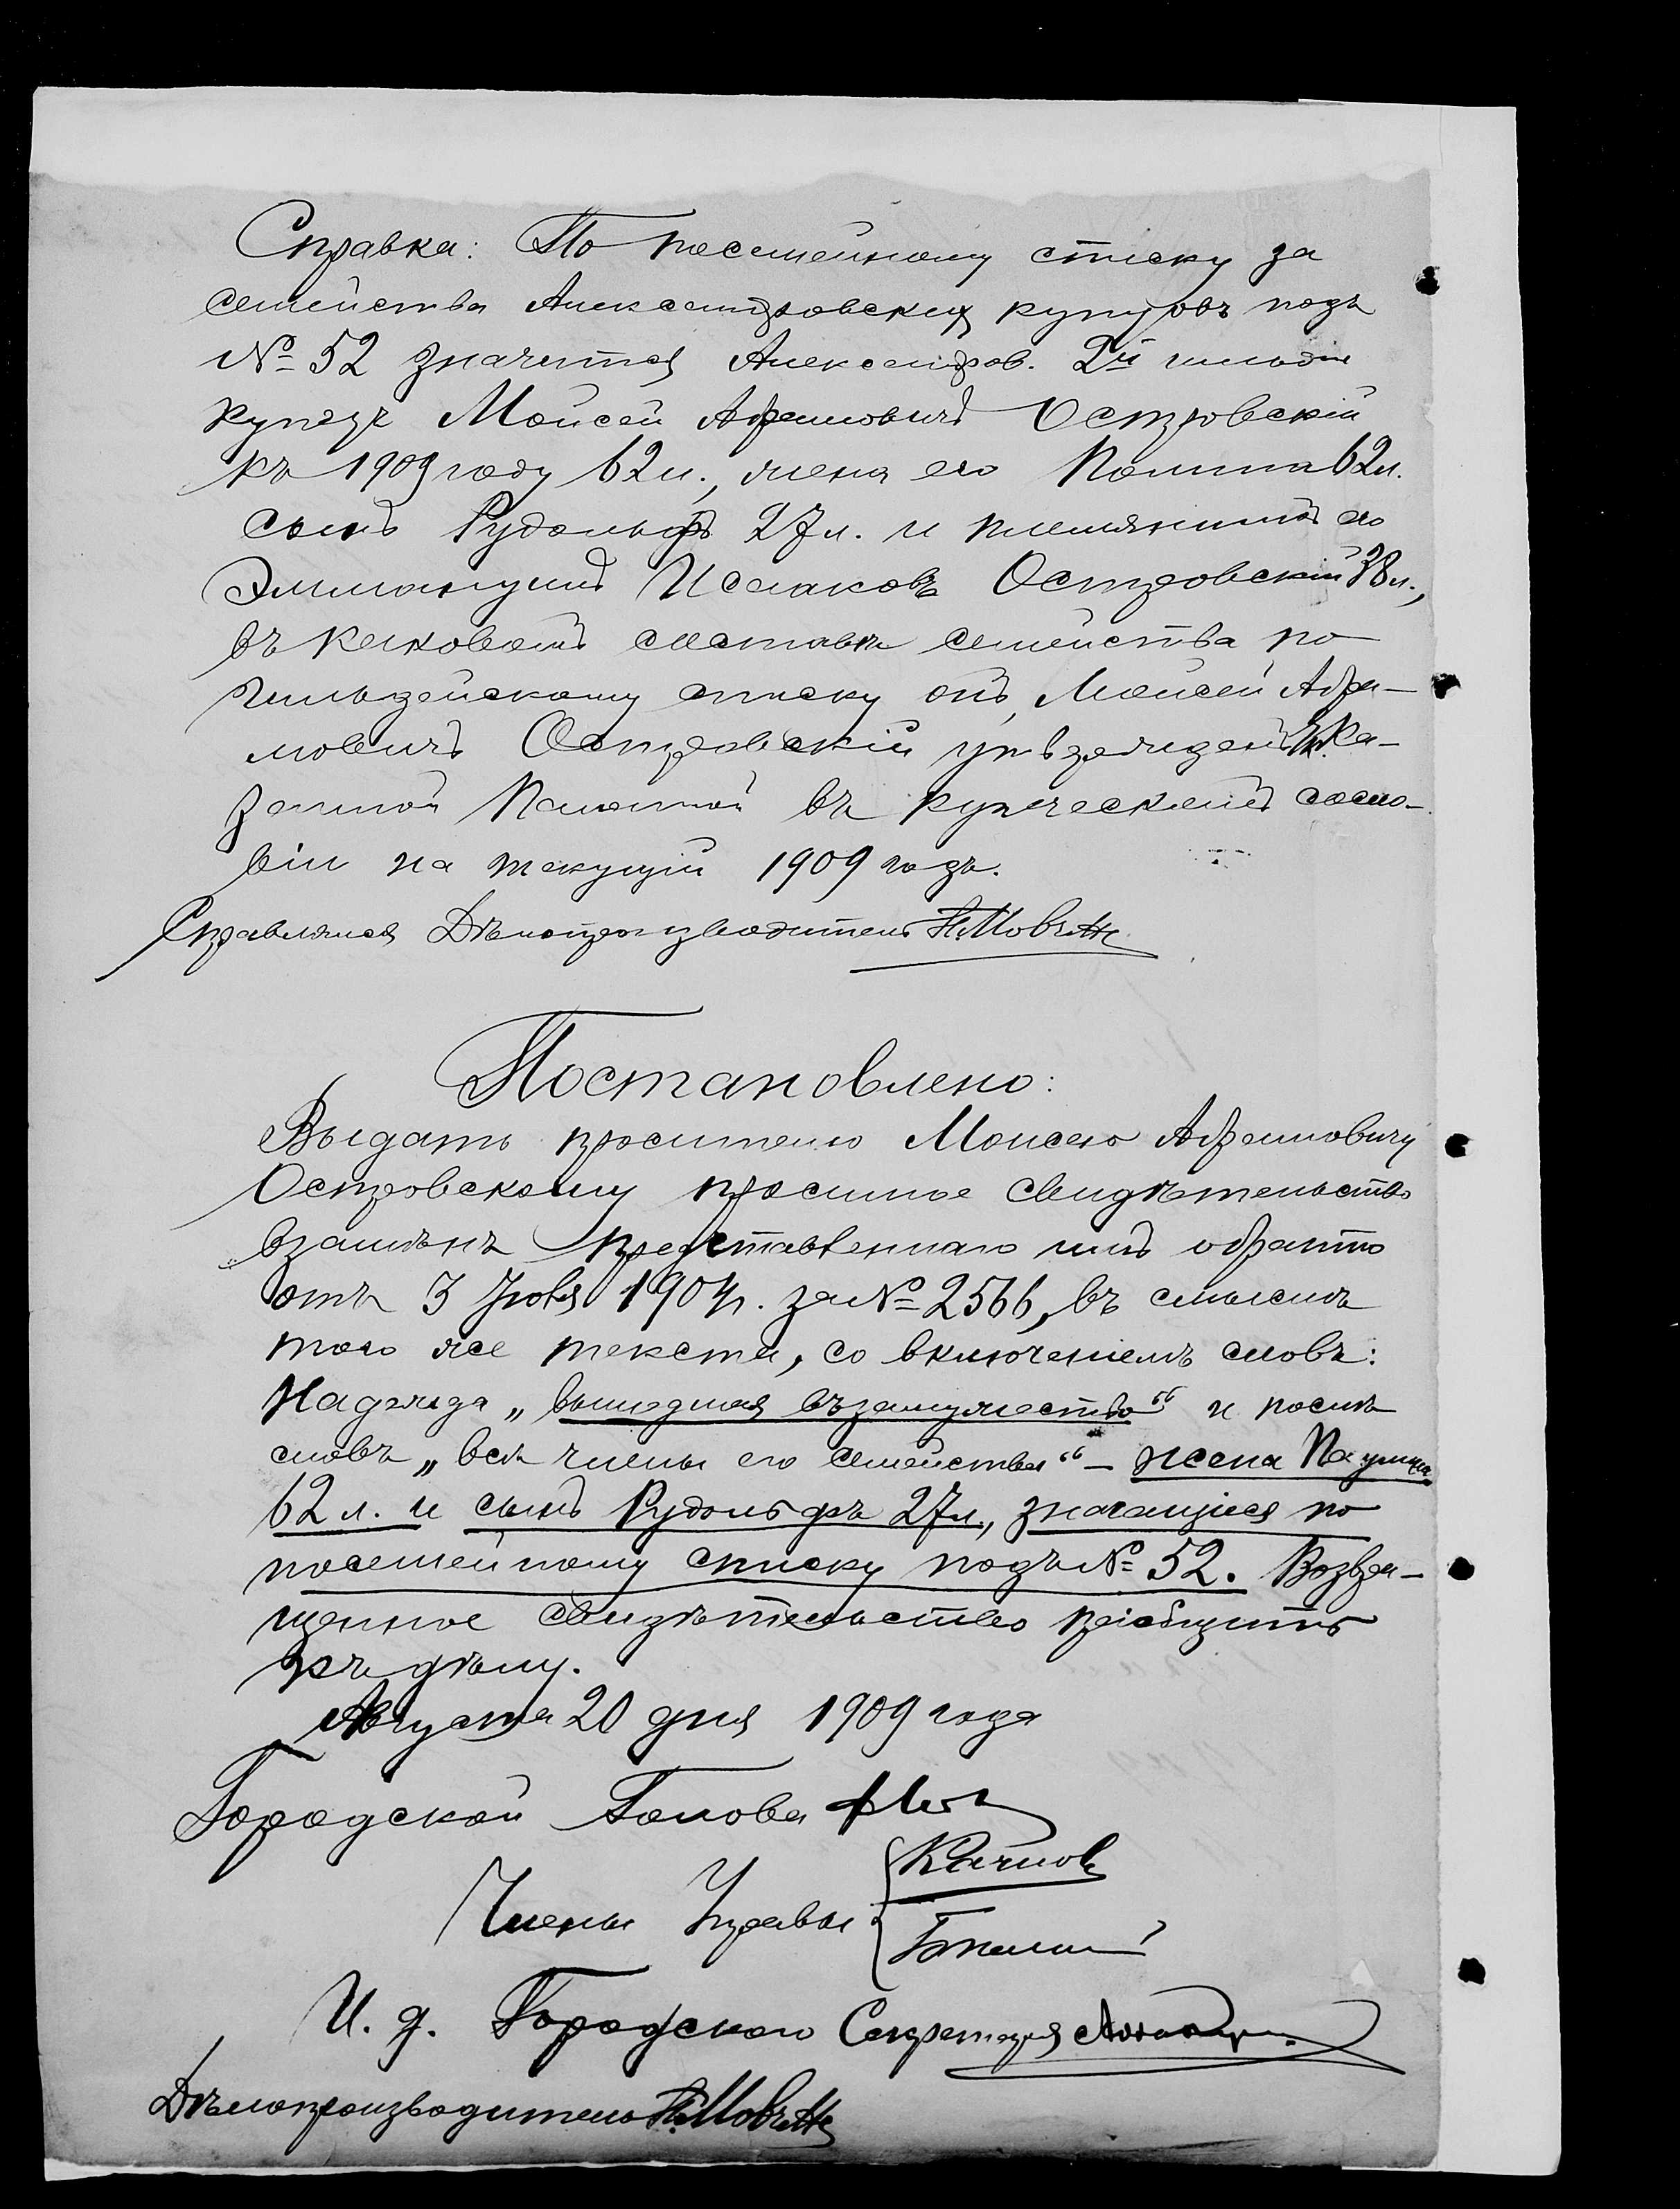 Справка: По посемейному списку за
семейства Александровских купцовъ подъ
№ 52 значится Александров. 2й гильдіи
купецъ Мойсей Абрамовичъ Островскій
къ 1909 году 62 л., жена его Полина 62 л.
сынъ Рудольфъ 27 л. и племянникъ его
Эммануилъ Исааковъ Островскій 38 л.,
въ каковомъ составѣ семейства по
гильдейскому списку онъ, Мойсей Абра-
мовичъ Островскій утвержденъ Ка-
зенной Палатой въ купеческомъ сосло-
віи на текущій 1909 годъ.
Справлялся Дѣлопроизводитель
Постановлено:
Выдать просителю Моисею Абрамовичу
Островскому просимое свидѣтельство
взамѣнъ представленнаго имъ обратно
отъ 3 1904 г. за № 2566, въ смыслѣ
того же текста, со включеніемъ словъ:
Надежда „вышедшая въ замужество“ и послѣ
словъ „всѣ члены его семейства“ – жена Паулина
62 л. и сынъ Рудольфъ 27 л., значащіеся по
посемейному списку подъ № 52. Возвра-
щенное свидѣтельство пріобщить
къ дѣлу.
Августа 20 дня 1909 года
Городской Голова
Члены Управы
И. д. Городского Секретаря
Дѣлопроизводитель